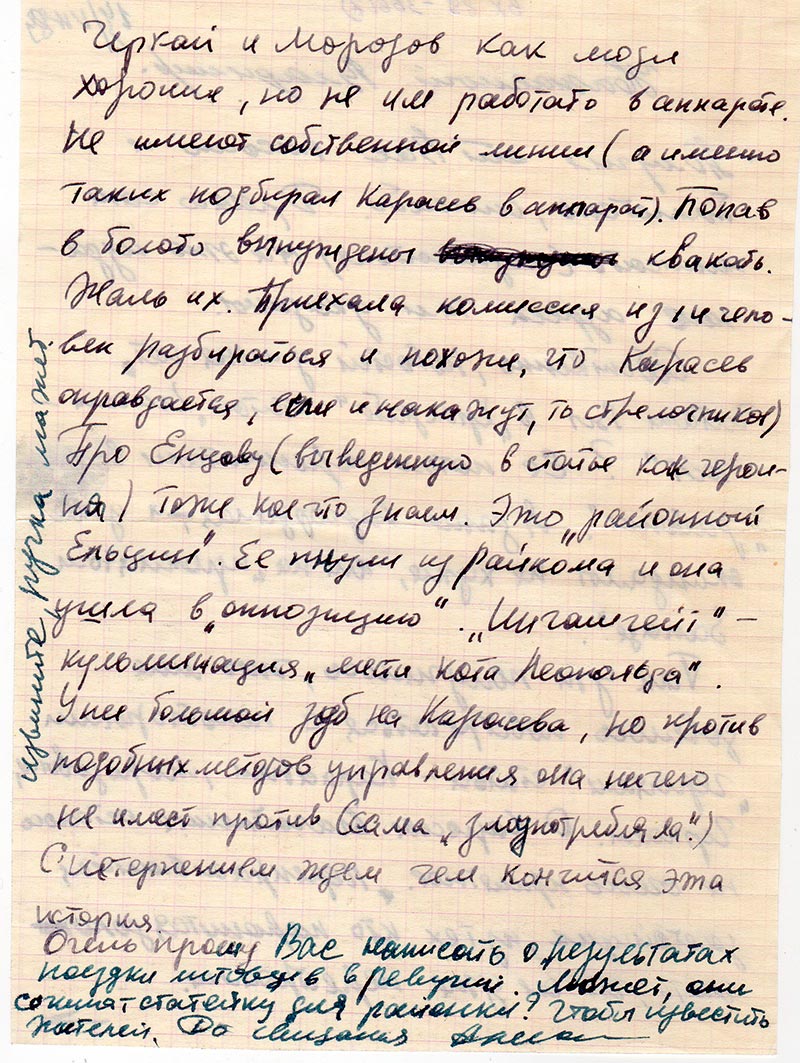 Черкай и Морозов как люди
хорошие, но не им работать в аппарате.
Не имеют собственной линии (а именно
таких подбирал Карасев в аппарат). Попав
в болото вынуждены квакать.
Жаль их. Приехала комиссия из 11 чело-
век разбираться и похоже, что Карасев
оправдается, если и накажут, то стрелочников)
Про Енцову (выведенную в статье как герои-
ня) тоже кое что знаем. Это „районный
Ельцин". Ее пнули из райкома и она
ушла в „оппозицию". „ -
кульминация „мести кота Леопольда".
У нее большой зуб на Карасева, но против
подобных методов управления она ничего
не имеет против (сама „злоупотребляла".)
С нетерпением ждем чем кончится эта
история.
Очень прошу Вас написать о результатах
поездки в Ревучий. Может, они
сочинят статейку для районки? Чтобы известить
жителей. До свидания
извините, ручка мажет